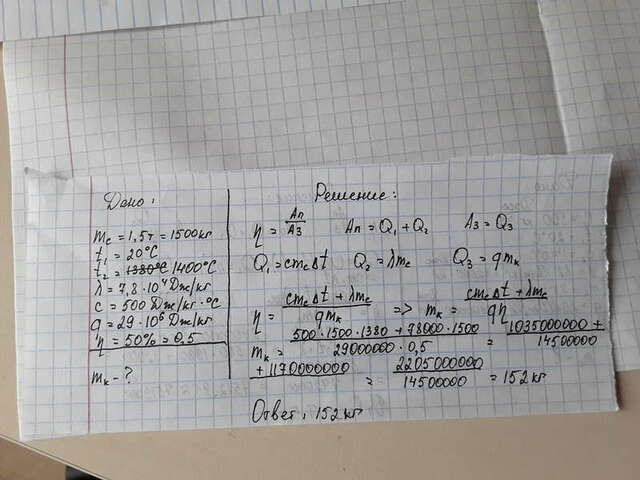 Дано:
mс = 1,5т = 1500кг
t₁ = 20°C
t₂ = 1380°C 1400°C
λ = 7,8 · 10⁴ Дж/кг
c = 500 Дж/кг · °C
q = 29 · 10⁶ Дж/кг
η = 50% = 0,5
mк - ?
Решение:
η = Aп/Aз Aп = Q₁ + Q₂ Aз = Q₃
Q₁ = cmсΔt Q₂ = λmс Q₃ = qmк
η = (cmсΔt + λmс)/(qmк) => mк = (cmсΔt + λmс)/(qη)
mк = (500 · 1500 · 1380 + 78000 · 1500)/(29000000 · 0,5) = (1035000000 +
+ 1170000000)/14500000 = 2205000000/14500000 = 152 кг
Ответ: 152 кг